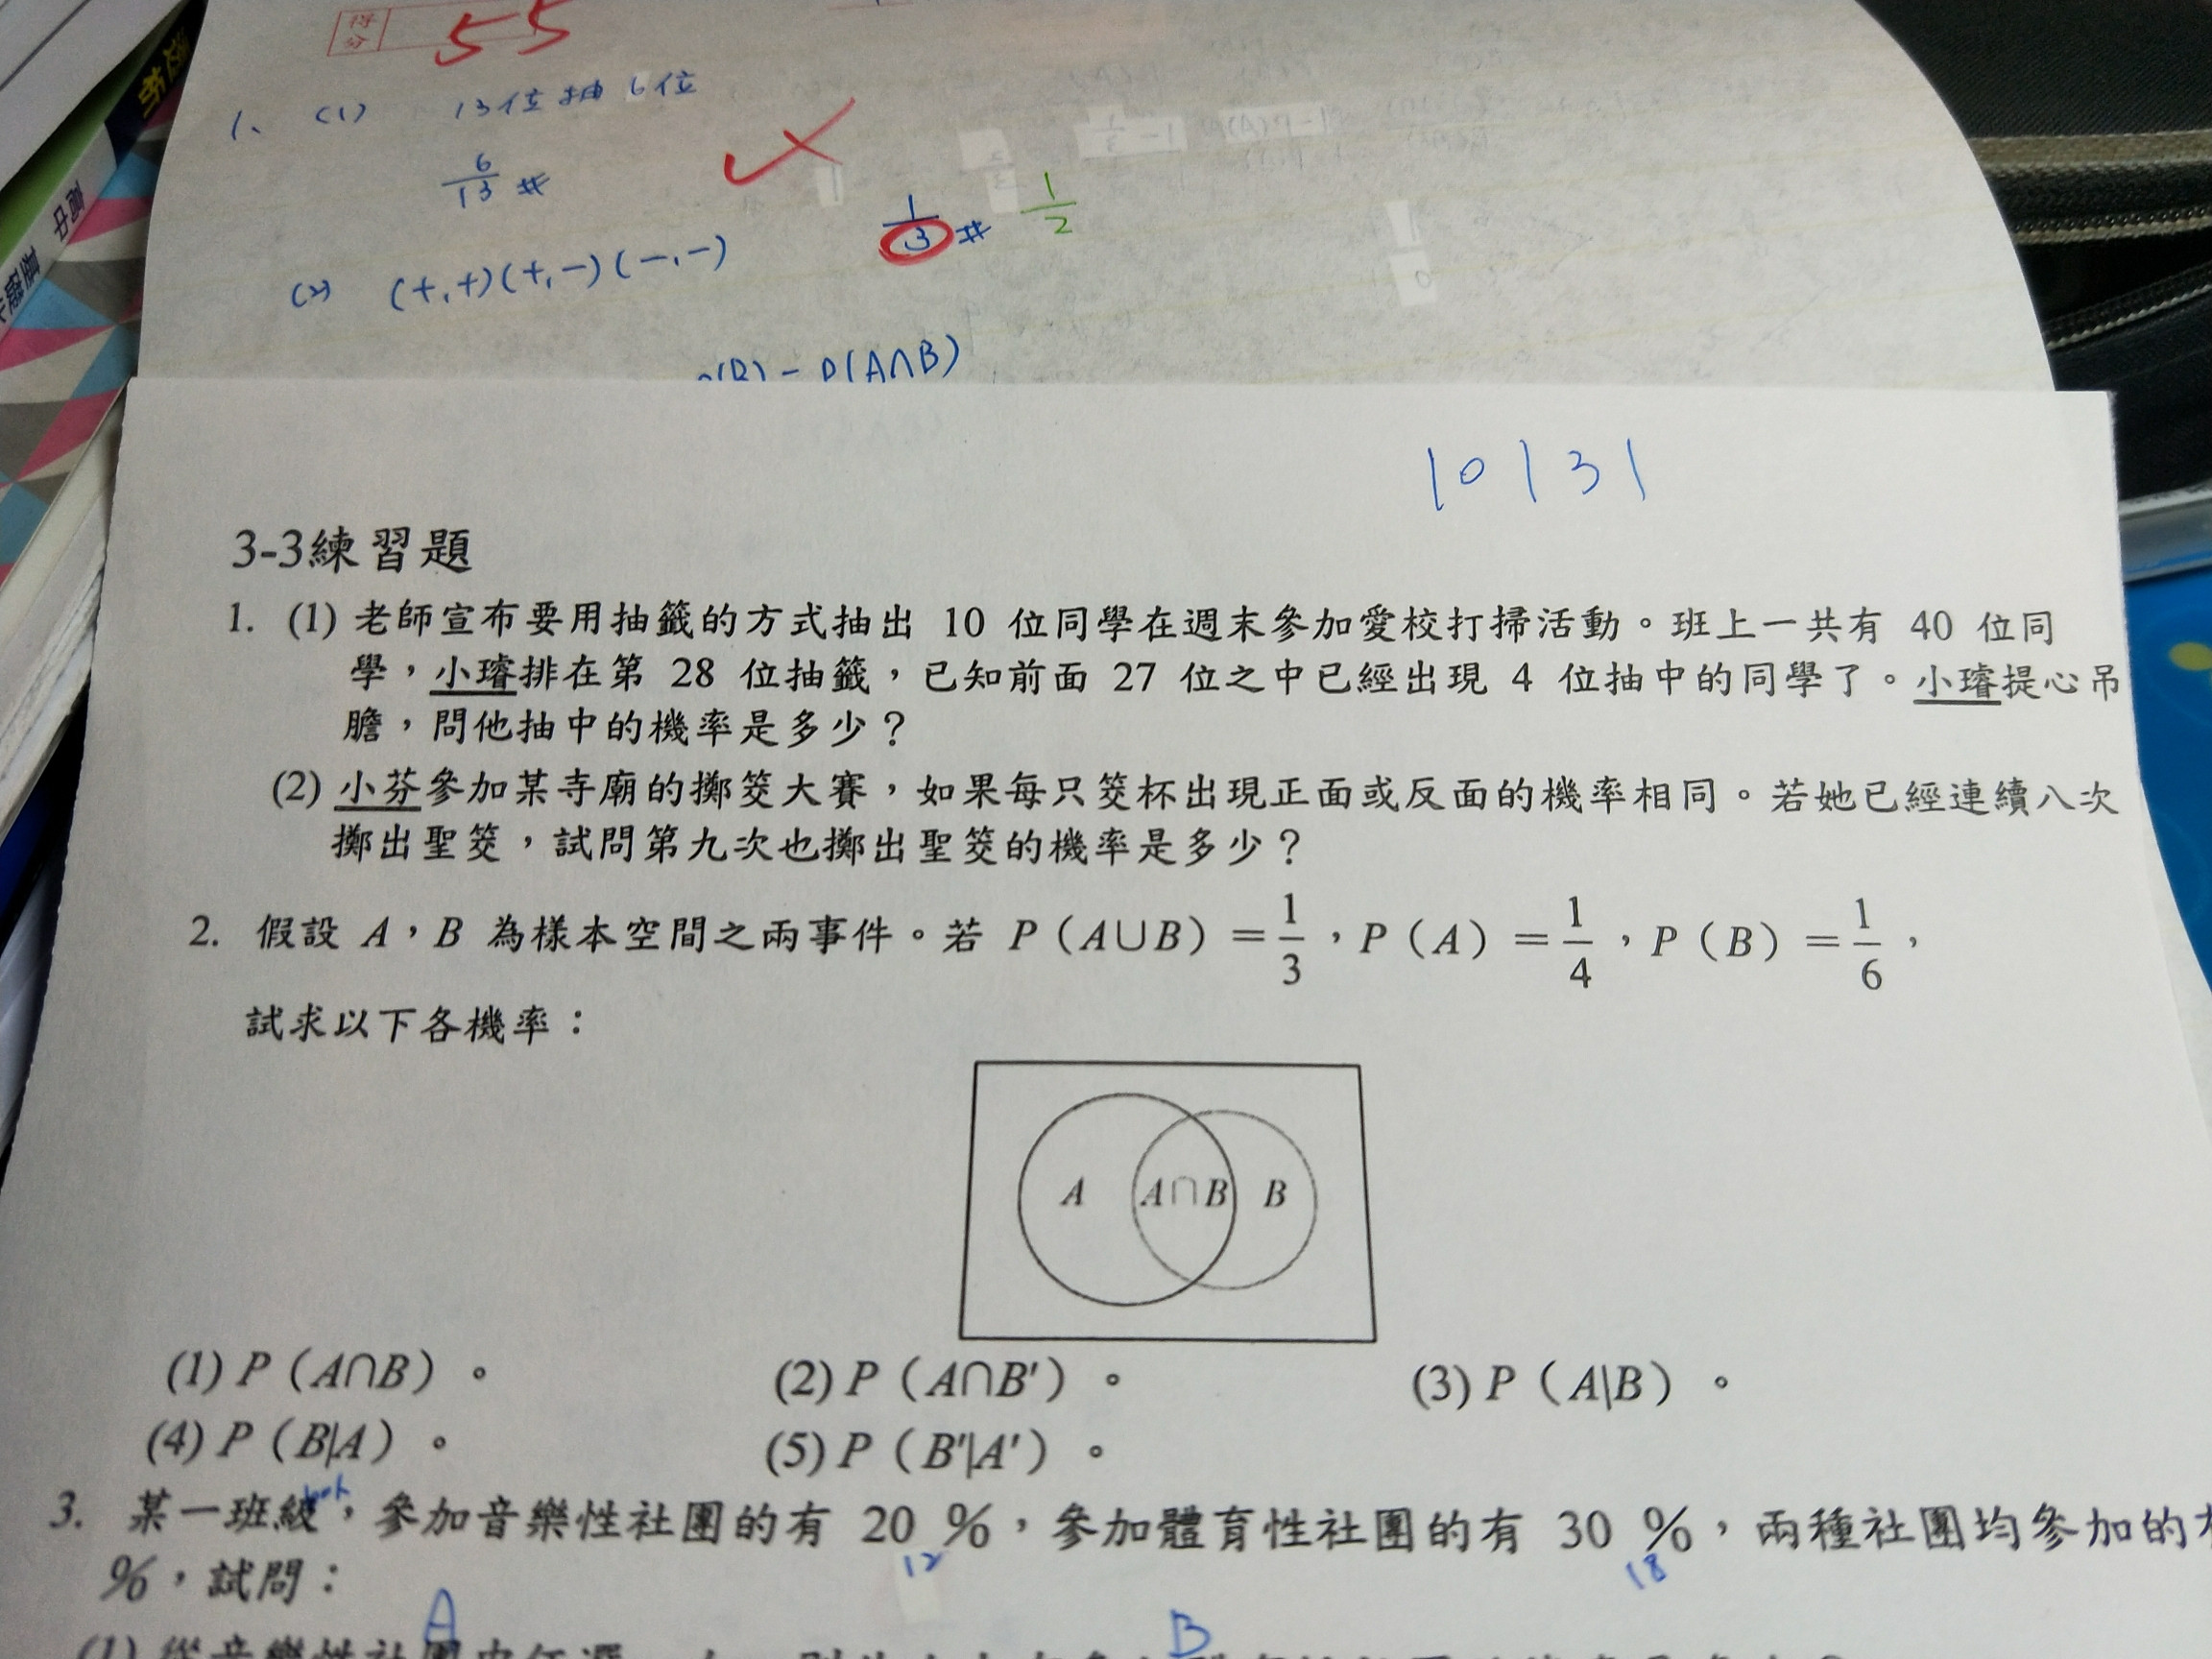 得分 55
1、 (1) 13位抽6位
6/13 #
1/3 # 1/2
(2) (+,+)(+,-)(-,-)
P(B)-P(A∩B)
10131
3-3練習題
1. (1) 老師宣布要用抽籤的方式抽出 10 位同學在週末參加愛校打掃活動。班上一共有 40 位同
學，小璿排在第 28 位抽籤，已知前面 27 位之中已經出現 4 位抽中的同學了。小璿提心吊
膽，問他抽中的機率是多少？
(2) 小芬參加某寺廟的擲筊大賽，如果每只筊杯出現正面或反面的機率相同。若她已經連續八次
擲出聖筊，試問第九次也擲出聖筊的機率是多少？
2. 假設 A，B 為樣本空間之兩事件。若 P（A∪B）=1/3，P（A）=1/4，P（B）=1/6，
試求以下各機率：
A A∩B B
(1) P（A∩B）。 (2) P（A∩B'）。 (3) P（A|B）。
(4) P（B|A）。 (5) P（B'|A'）。
3. 某一班級，參加音樂性社團的有 20 %，參加體育性社團的有 30 %，兩種社團均參加的
12 18
%，試問：
A B